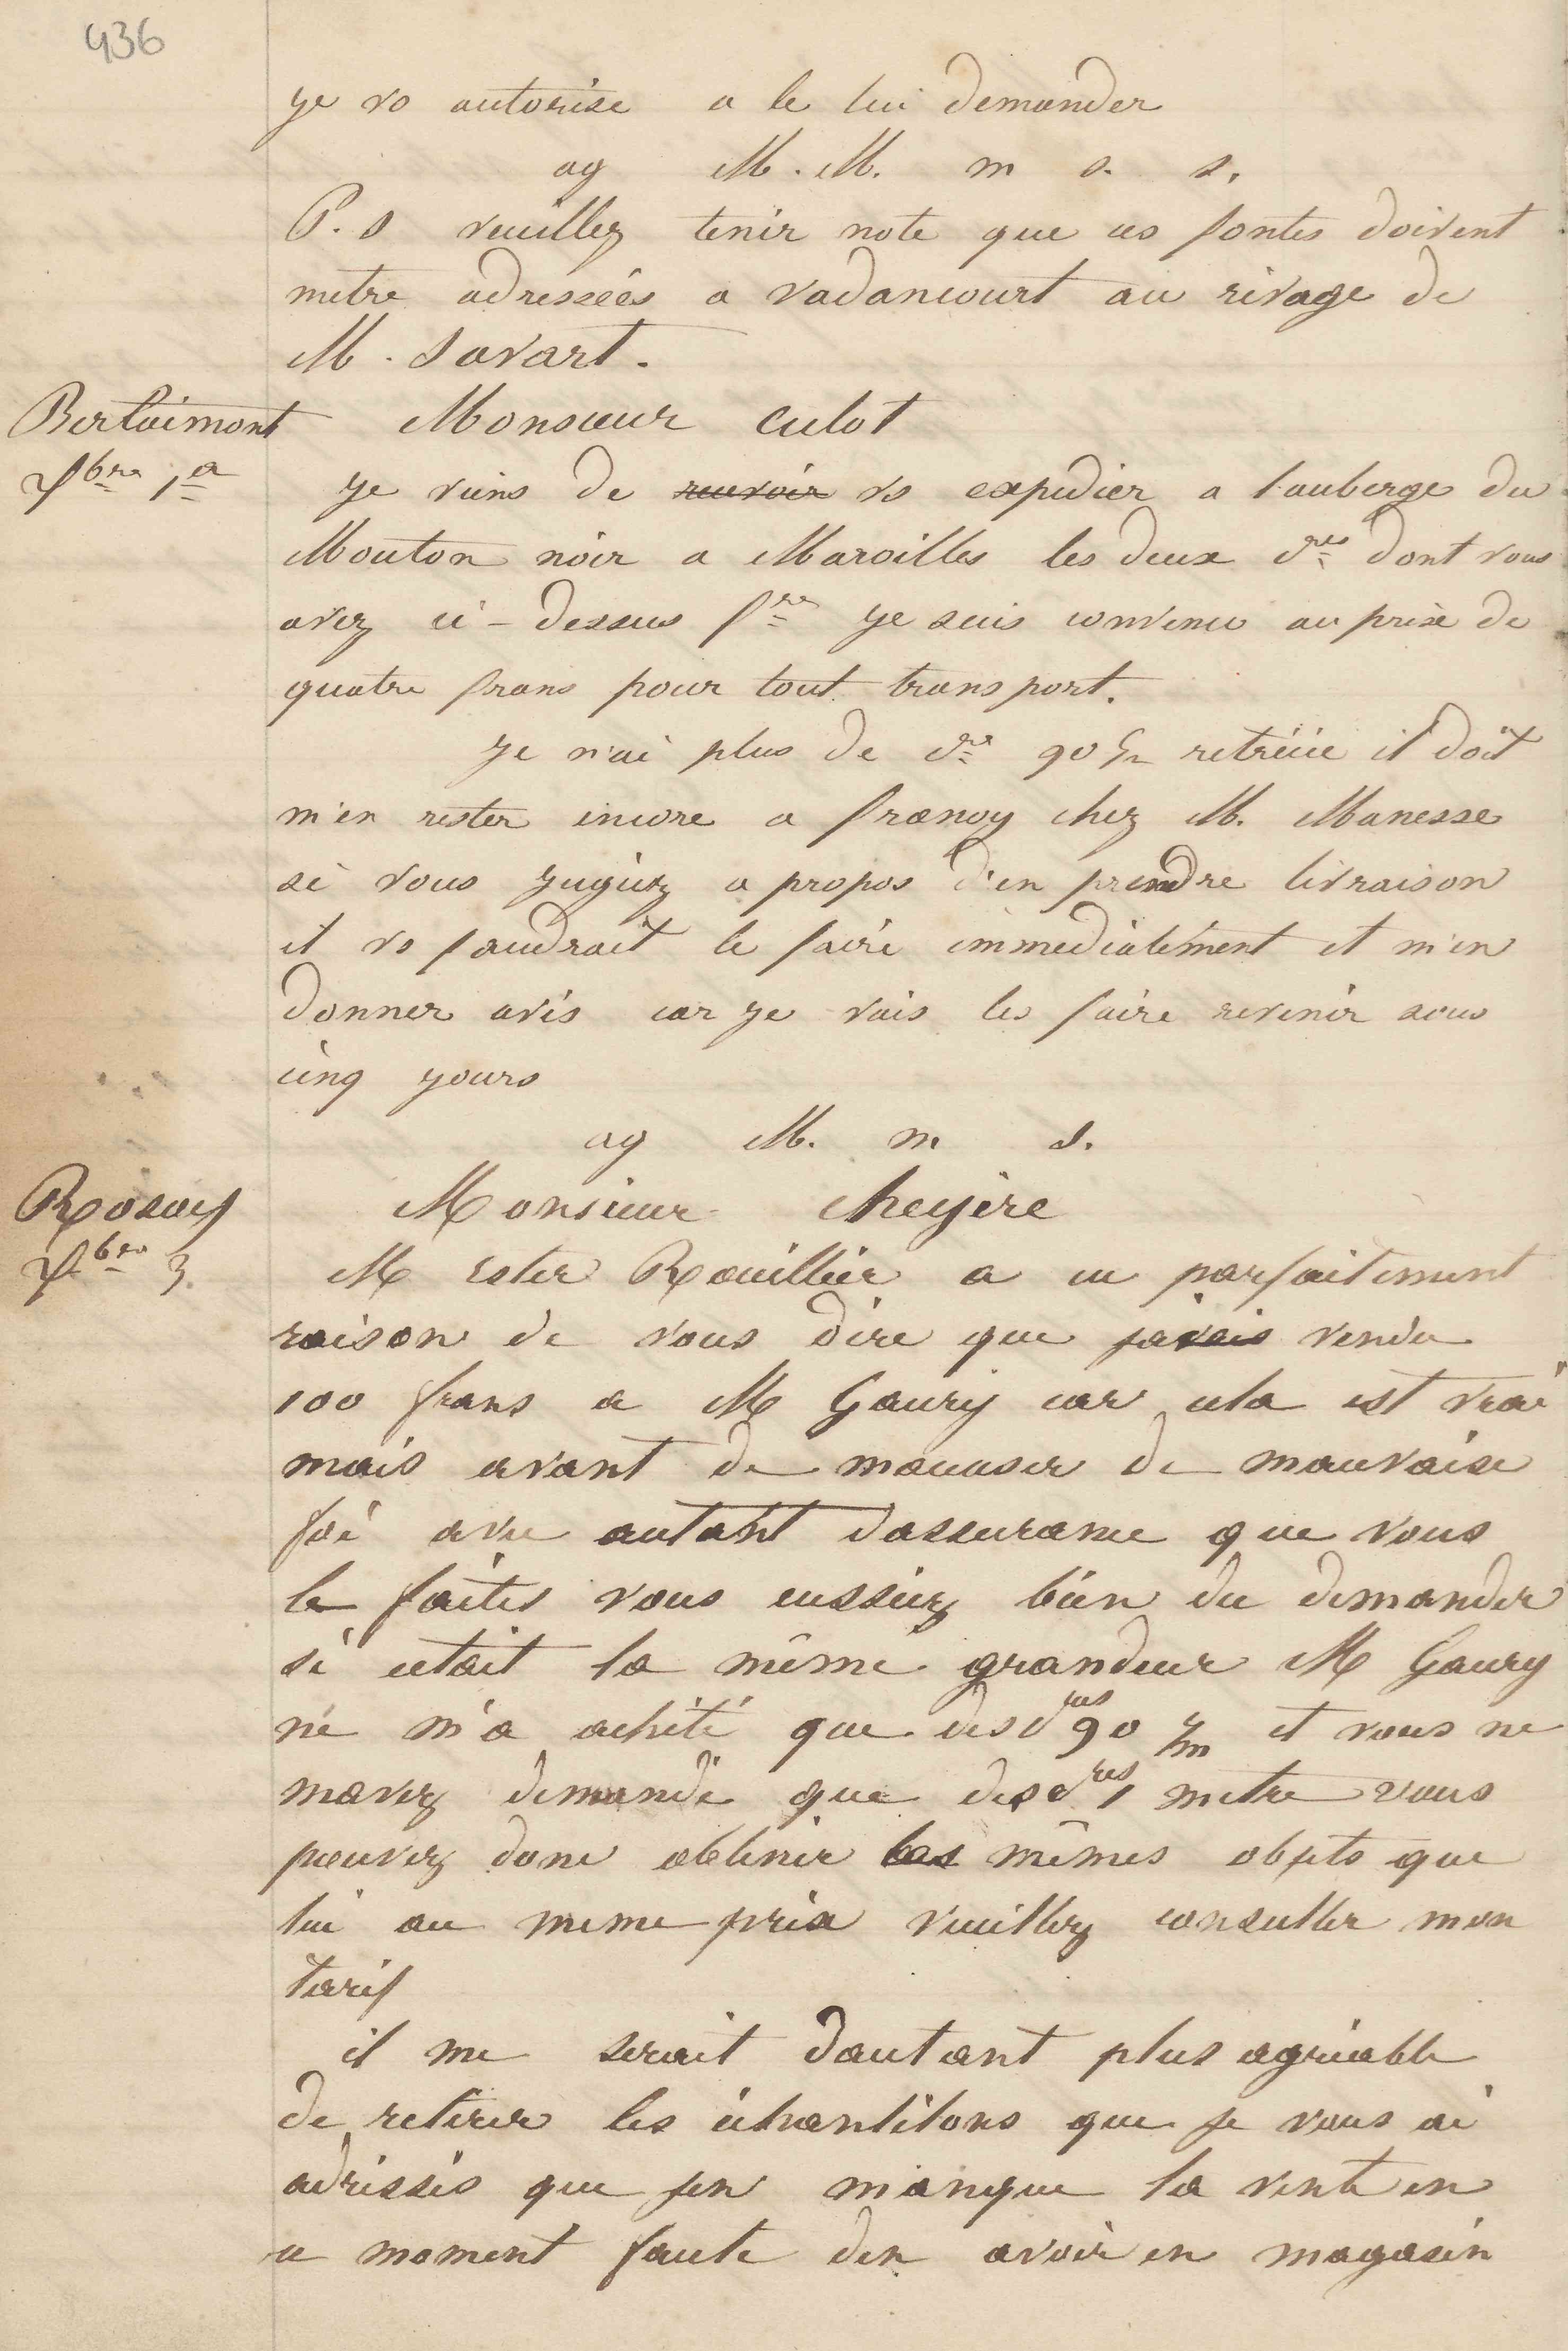 436
je vs autorise a le lui demander
ag M. M. m s. s.
P.S veuillez tenir note que ces fontes doivent
metre adressées a vadancourt au rivage de
M. Savart.
Berlaimont
7bre 1er
Monsieur Culot
je viens de recevoir vs expedier a l'auberge du
Mouton noir a Maroilles les deux dont vous
avez ci-dessus fre je suis convenu au prix de
quatre frans pour tout transport.
je n'ai plus de 90 retréçie il doit
m'en rester encore a fresnoy chez M. Manesse
si vous jugiez a propos d'en prendre livraison
il vs faudrait le faire immediatement et m'en
donner avis car je vais les faire revenir sous
cinq jours
ag M. m s.
Rosoy
7bre 3.
Monsieur
M Ester Rouillier a eu parfaitement
raison de vous dire que javais vendu
100 frans a M Gaury car cela est vrai
mais avant de maccuser de mauvaise
foi avec autant dassurance que vous
le faites vous eussiez bien du demander
si cetait la même grandeur M Gaury
ne m'a acheté que des dres 90 c/m et vous ne
mavez demandé que des dres 1 metre vous
pouvez donc obtenir les mêmes objets que
lui au meme prix veuillez consulter mon
tarif
il me serait dautant plus agréable
de retirer les échantillons que je vous ai
adressés que jen manque la vente en
ce moment faute den avoir en magasin